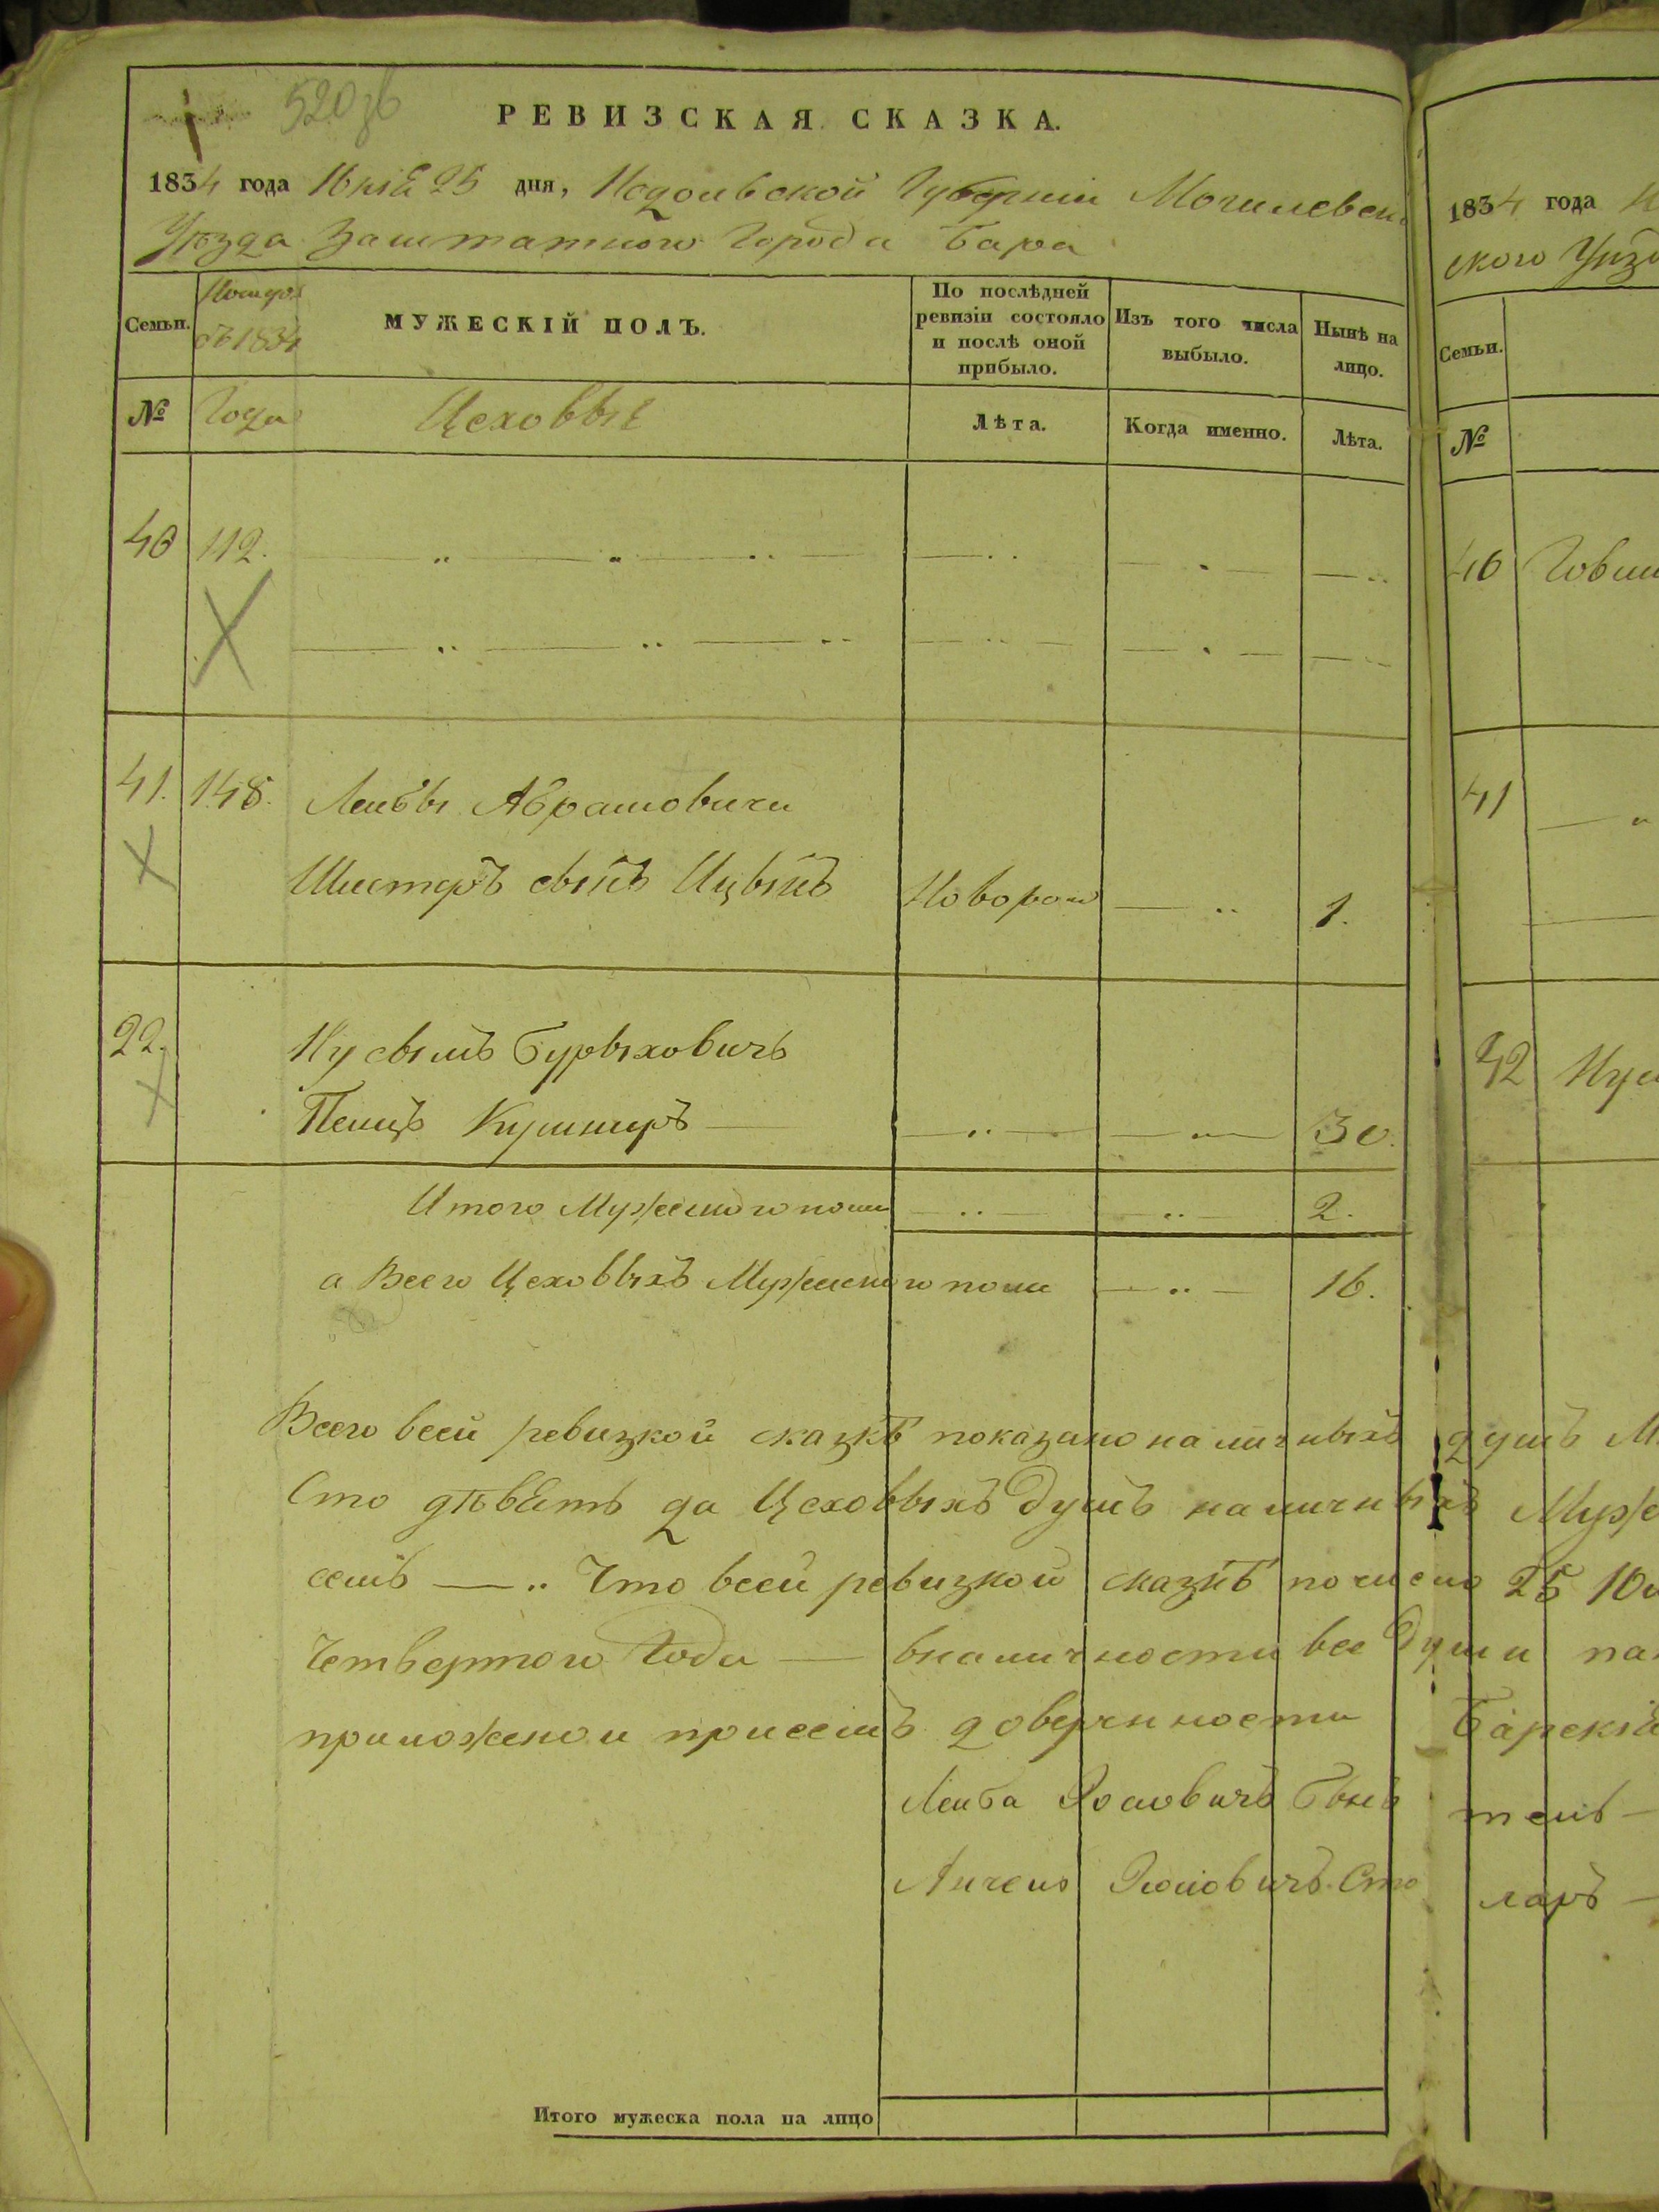 520зв
РЕВИЗСКАЯ СКАЗКА.
1834 года Июня 25 дня, Подольской Губерніи Могилевско
Уѣзда Заштатного Города Бара
Семьи.
съ 1834
Года
МУЖЕСКІЙ ПОЛЪ.
По послѣдней ревизіи состояло и послѣ оной прибыло.
Изъ того числа выбыло.
Нынѣ на лицо.
№
Цеховые
Лѣта.
Когда именно.
Лѣта.
40 112.
41. 148. Лейбы Абрамовичи
Шистеръ сынъ Ицыкъ Новорож 1.
22. Нусымъ Бурыховичъ
Пейцъ Кушниръ 30.
Итого Мужеского пола 2.
а Всего Цеховыхъ Мужеского пола 16.
Всего всей ревизкой сказкѣ показано наличныхъ душъ М
Сто дѣвять да Цеховыхъ душъ наличныхъ Муже
семъ Что всей ревизкой сказкѣ 25 Ю
Четвертого Года вналичности все Души
приложеной присемъ доверенности Барскій
Лейба
Сто ляръ
Итого мужеска пола на лицо
1834 года
ского Уѣзд
Семьи.
№
40
41
42